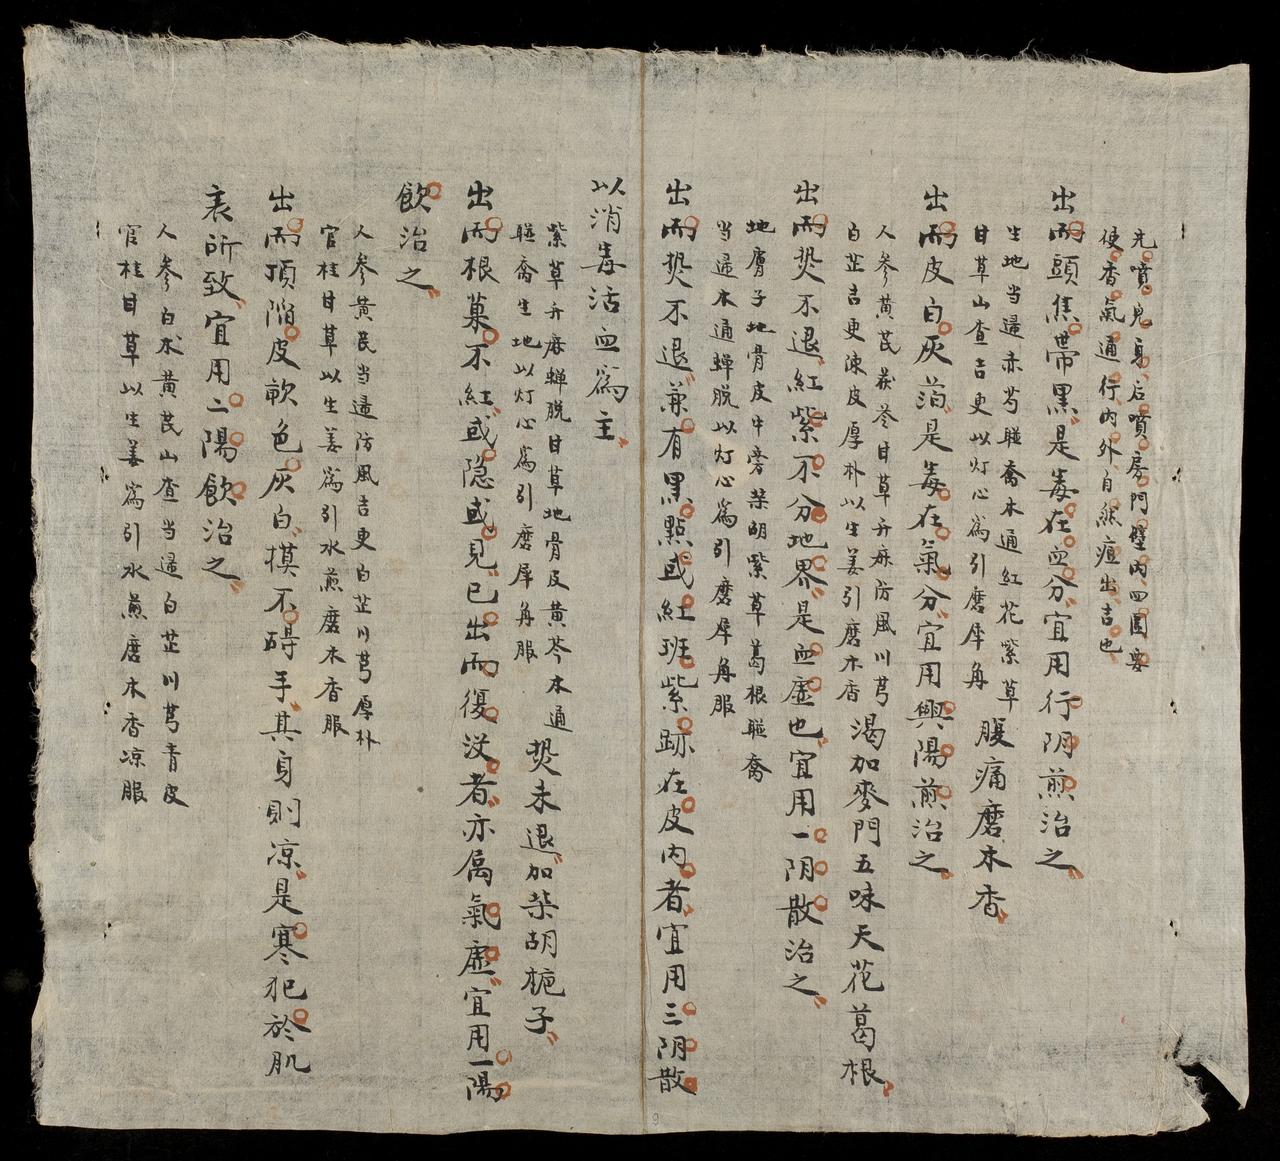 先噴兒身后噴房門壁內四圍要
使香氣通行內外自然痘出吉也
出而頭焦帶黑是毒在血分宜用行阴煎治之
生地当歸赤芍連喬木通紅花紫草
甘草山查吉更以灯心為引磨犀角
腹痛磨木香
出而皮白灰萡是毒在氣分宜用興陽煎治之
人參黃芪茯苓甘草升麻防風川芎
白芷吉更陳皮厚朴以生姜引磨木香
渴加麥門五味天花葛根
出而熱不退紅紫不分地界是血虛也宜用一阴散治之
地膚子地骨皮牛旁柴胡紫草葛根連喬
当歸木通蟬脱以灯心為引磨犀角服
出而熱不退兼有黑點或紅班紫跡在皮內者宜用三阴散
以消毒活血為主
紫草升麻蟬脱甘草地骨皮黃芩木通
連喬生地以灯心為引磨犀角服
熱未退加柴胡梔子
出而根菓不紅或隐或見已出而復沒者亦属氣虛宜用一陽
飲治之
人參黃芪当歸防風吉更白芷川芎厚朴
官桂甘草以生姜為引水煎磨木香服
出而頂陷皮軟色灰白摸不碍手其身則凉是寒犯於肌
表所致宜用二陽飲治之
人參白术黃芪山查当歸白芷川芎青皮
官桂甘草以生姜為引水煎磨木香凉服
9